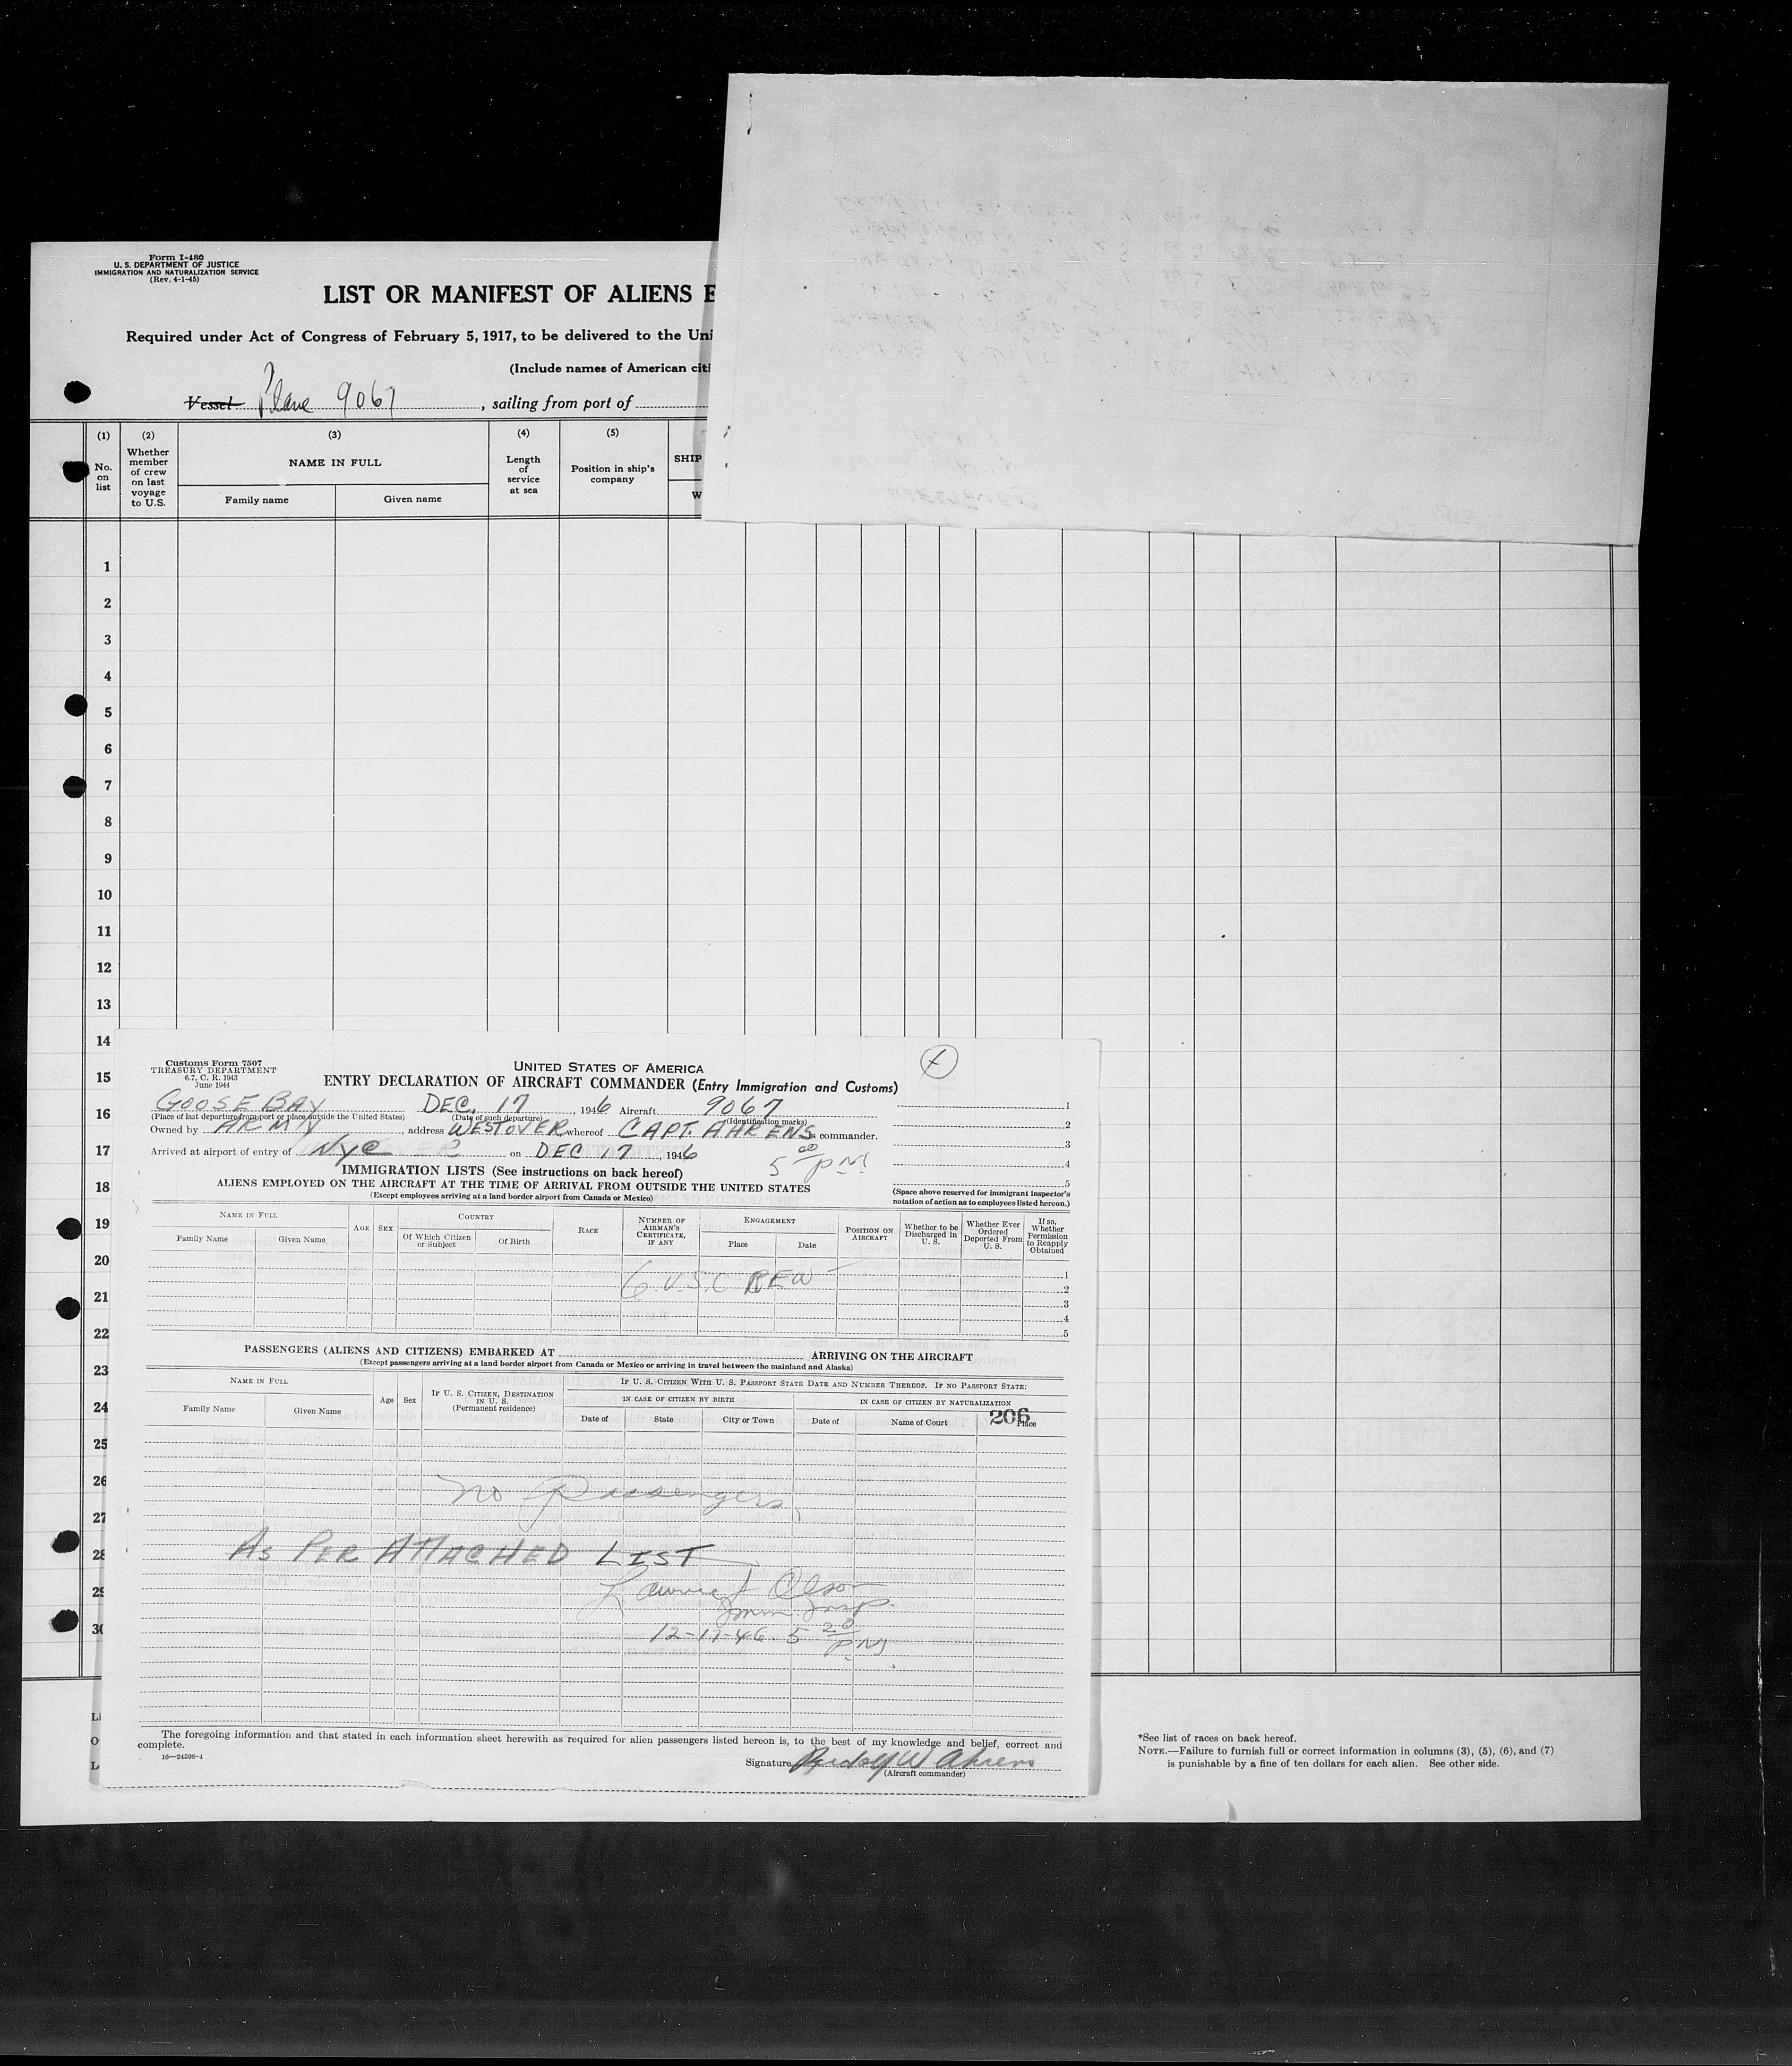 Form I-480
U. S. DEPARTMENT OF JUSTICE
IMMIGRATION AND NATURALIZATION SERVICE
(Rev. 4-1-45)
LIST OR MANIFEST OF ALIENS E
Required under Act of Congress of February 5, 1917, to be delivered to the Uni
(Include names of American citi
Vessel Plane 9067, sailing from port of
(1) (2) (3) (4) (5)
No. on list
Whether member of crew on last voyage to U.S.
NAME IN FULL
Family name Given name
Length of service at sea
Position in ship's company
SHIP
W
1
2
3
4
5
6
7
8
9
10
11
12
13
14
15
16
17
18
19
20
21
22
23
24
25
26
27
28
29
30
Li
O
L
Customs Form 7507
TREASURY DEPARTMENT
6.7, C. R. 1943
June 1944
UNITED STATES OF AMERICA
ENTRY DECLARATION OF AIRCRAFT COMMANDER (Entry Immigration and Customs)
GOOSE BAY DEC. 17, 1946 Aircraft 9067
(Place of last departure from port or place outside the United States) (Date of such departure) (Identification marks)
Owned by ARMY, address WESTOVER whereof CAPT. AHRENS is commander.
Arrived at airport of entry of NYC on DEC 17, 1946
5 00 PM
1
2
3
4
5
(Space above reserved for immigrant inspector's notation of action as to employees listed hereon.)
IMMIGRATION LISTS (See instructions on back hereof)
ALIENS EMPLOYED ON THE AIRCRAFT AT THE TIME OF ARRIVAL FROM OUTSIDE THE UNITED STATES
(Except employees arriving at a land border airport from Canada or Mexico)
NAME IN FULL
Family Name Given Name
AGE SEX
COUNTRY
Of Which Citizen or Subject Of Birth
RACE
NUMBER OF AIRMAN'S CERTIFICATE, IF ANY
ENGAGEMENT
Place Date
POSITION ON AIRCRAFT
Whether to be Discharged in U. S.
Whether Ever Ordered Deported From U. S.
If so, Whether Permission to Reapply Obtained
6 U.S. CREW
1
2
3
4
5
PASSENGERS (ALIENS AND CITIZENS) EMBARKED AT ARRIVING ON THE AIRCRAFT
(Except passengers arriving at a land border airport from Canada or Mexico or arriving in travel between the mainland and Alaska)
NAME IN FULL
Family Name Given Name
Age Sex
IF U. S. CITIZEN, DESTINATION IN U. S. (Permanent residence)
IF U. S. CITIZEN WITH U. S. PASSPORT STATE DATE AND NUMBER THEREOF. IF NO PASSPORT STATE:
IN CASE OF CITIZEN BY BIRTH IN CASE OF CITIZEN BY NATURALIZATION
Date of State City or Town Date of Name of Court Place
206
No Passengers
AS PER ATTACHED LIST
Olson
Imm. Insp.
12-17-46 5 20 PM
The foregoing information and that stated in each information sheet herewith as required for alien passengers listed hereon is, to the best of my knowledge and belief, correct and
complete.
16—24598-4
Signature Rudolf W Ahrens
(Aircraft commander)
*See list of races on back hereof.
NOTE.—Failure to furnish full or correct information in columns (3), (5), (6), and (7)
is punishable by a fine of ten dollars for each alien. See other side.